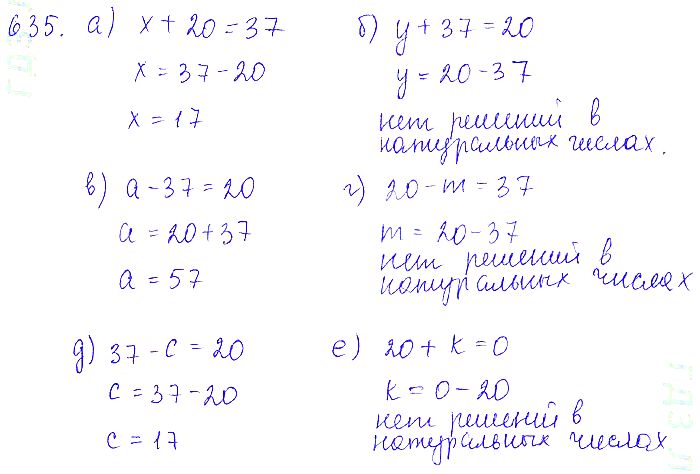 635. а) x + 20 = 37
x = 37 - 20
x = 17
б) y + 37 = 20
y = 20 - 37
нет решений в
натуральных числах.
в) a - 37 = 20
a = 20 + 37
a = 57
г) 20 - m = 37
m = 20 - 37
нет решений в
натуральных числах
д) 37 - c = 20
c = 37 - 20
c = 17
е) 20 + k = 0
k = 0 - 20
нет решений в
натуральных числах